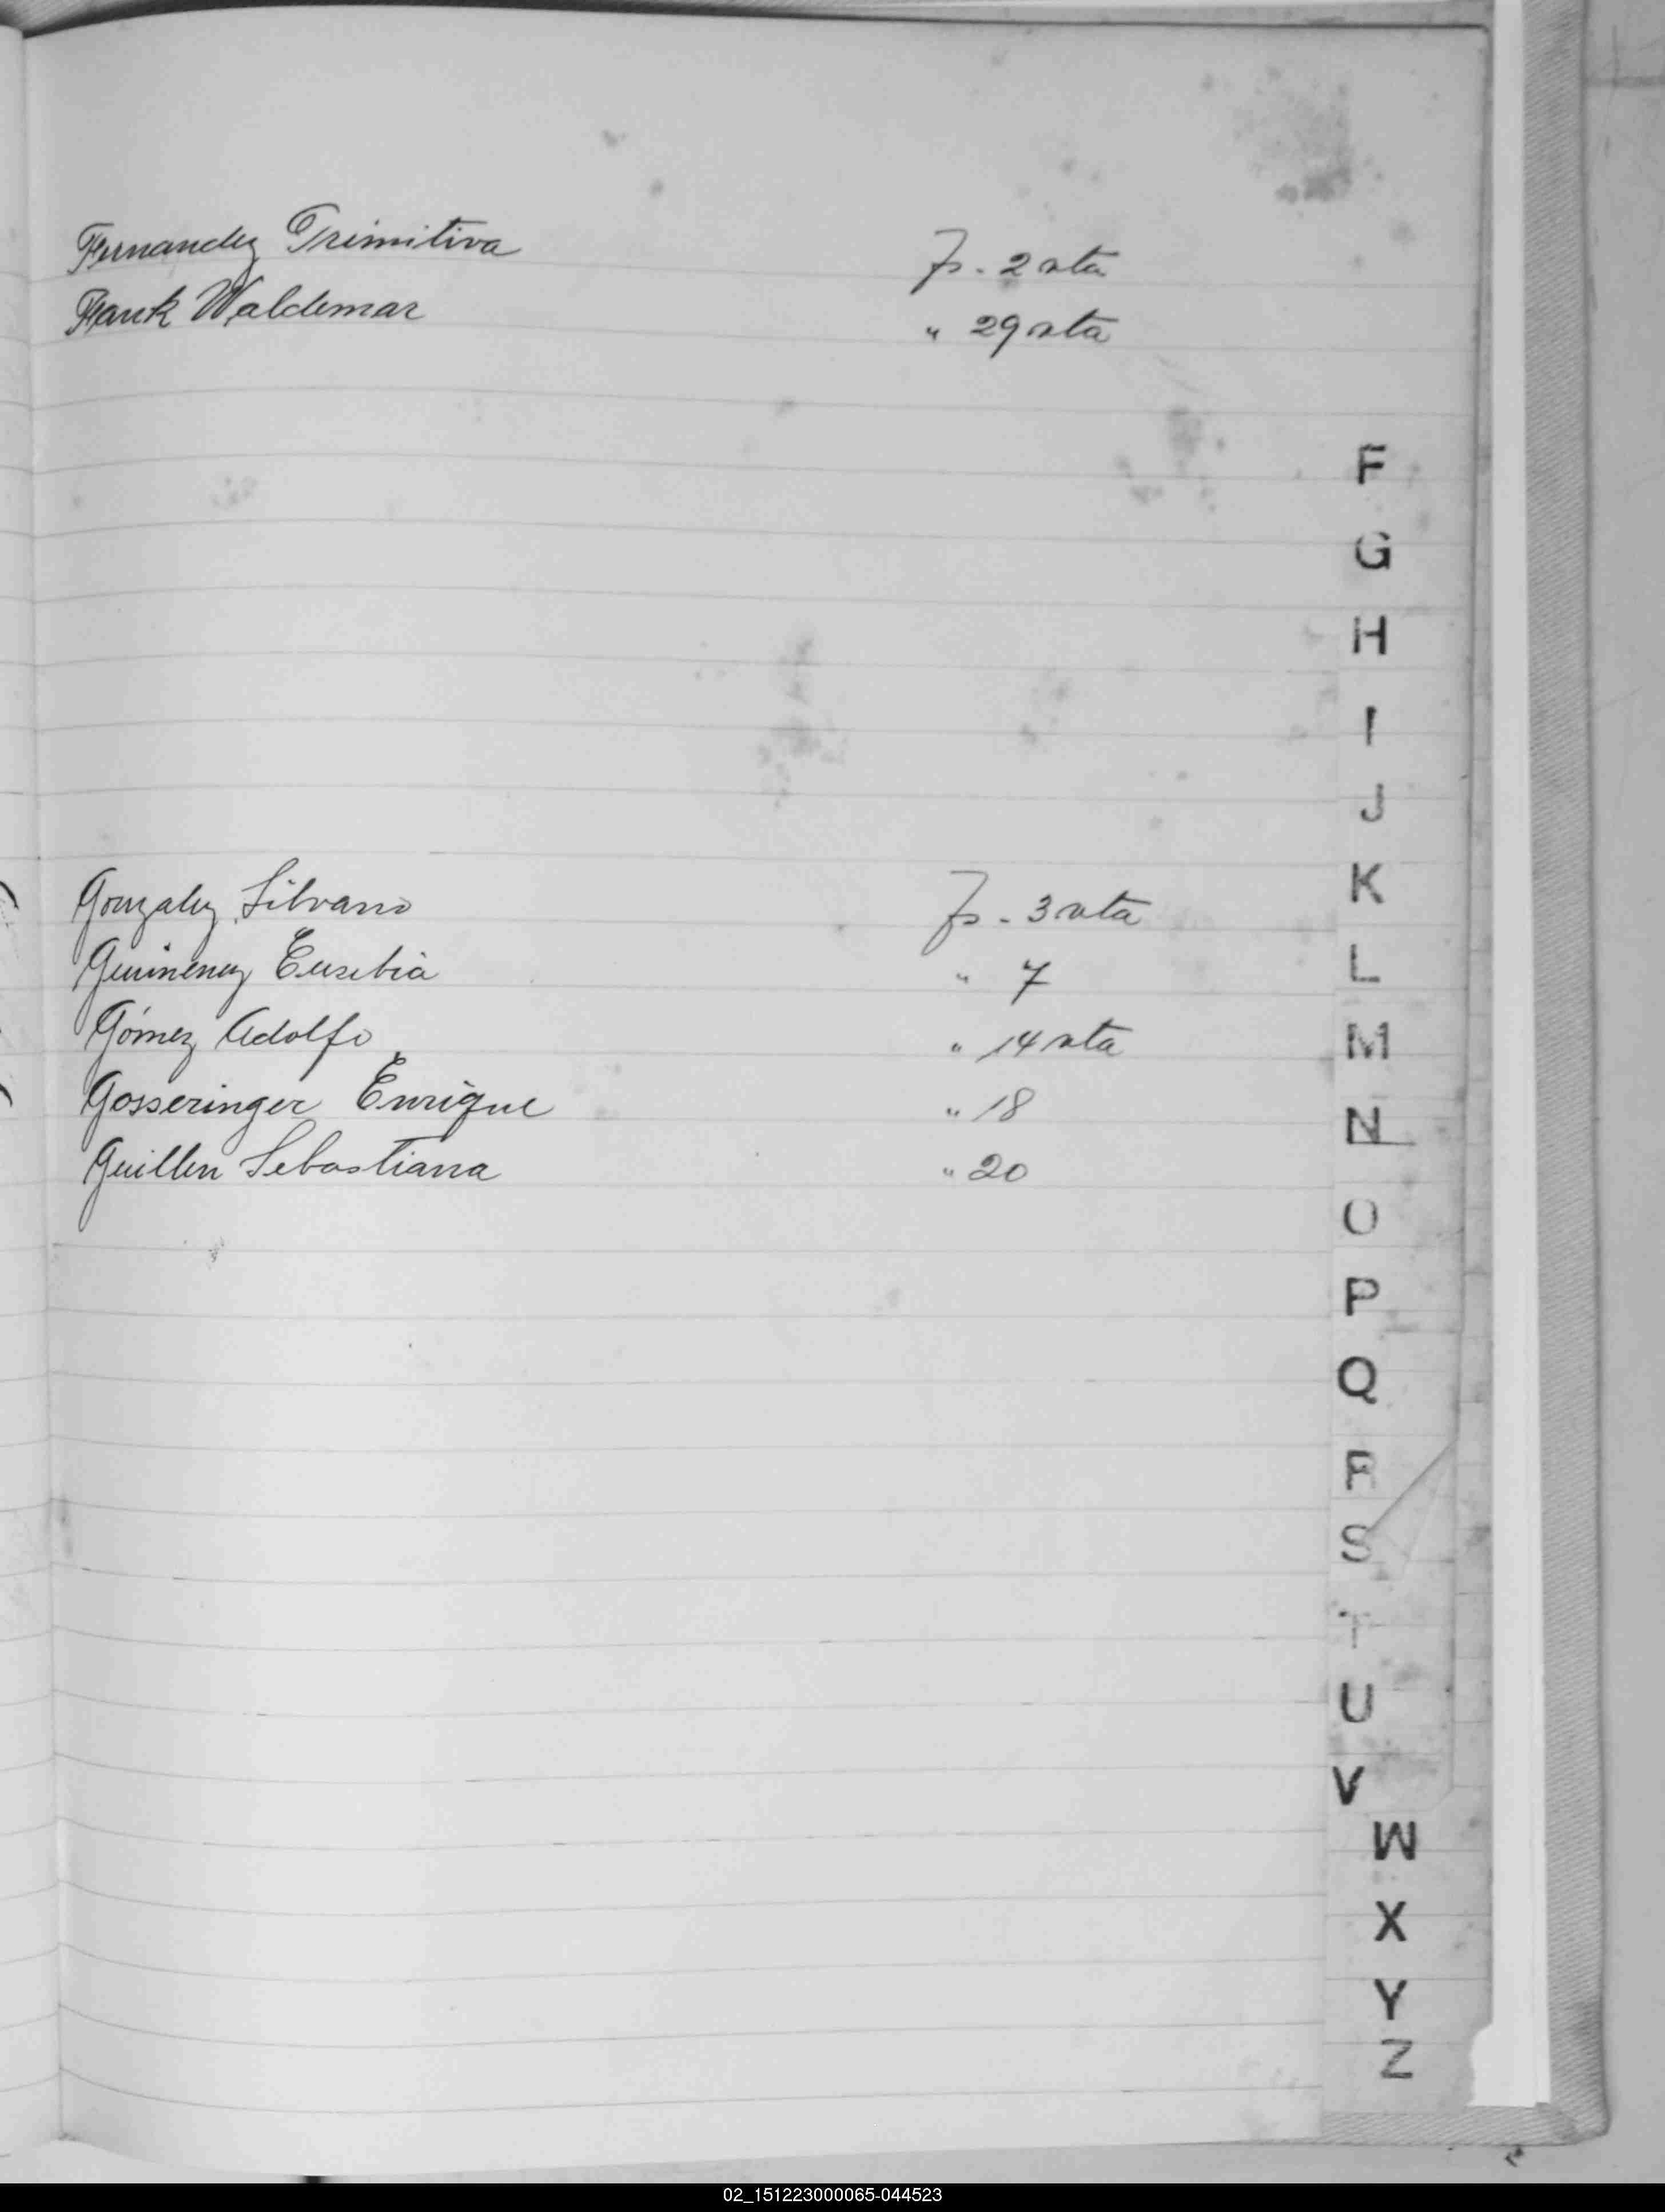 Fernandez Primitiva Fs. 2 vta
Frank Waldemar " 29 vta
F
G
H
I
J
K
Gonzalez Silvano Fs. 3 vta
Guimenez Eusebia " 7
L
Gómez Adolfo " 14 vta
M
Gosseringer Enrique " 18
N
Guillen Sebastiana " 20
O
P
Q
R
S
T
U
V
W
X
Y
Z
02_151223000065-044523